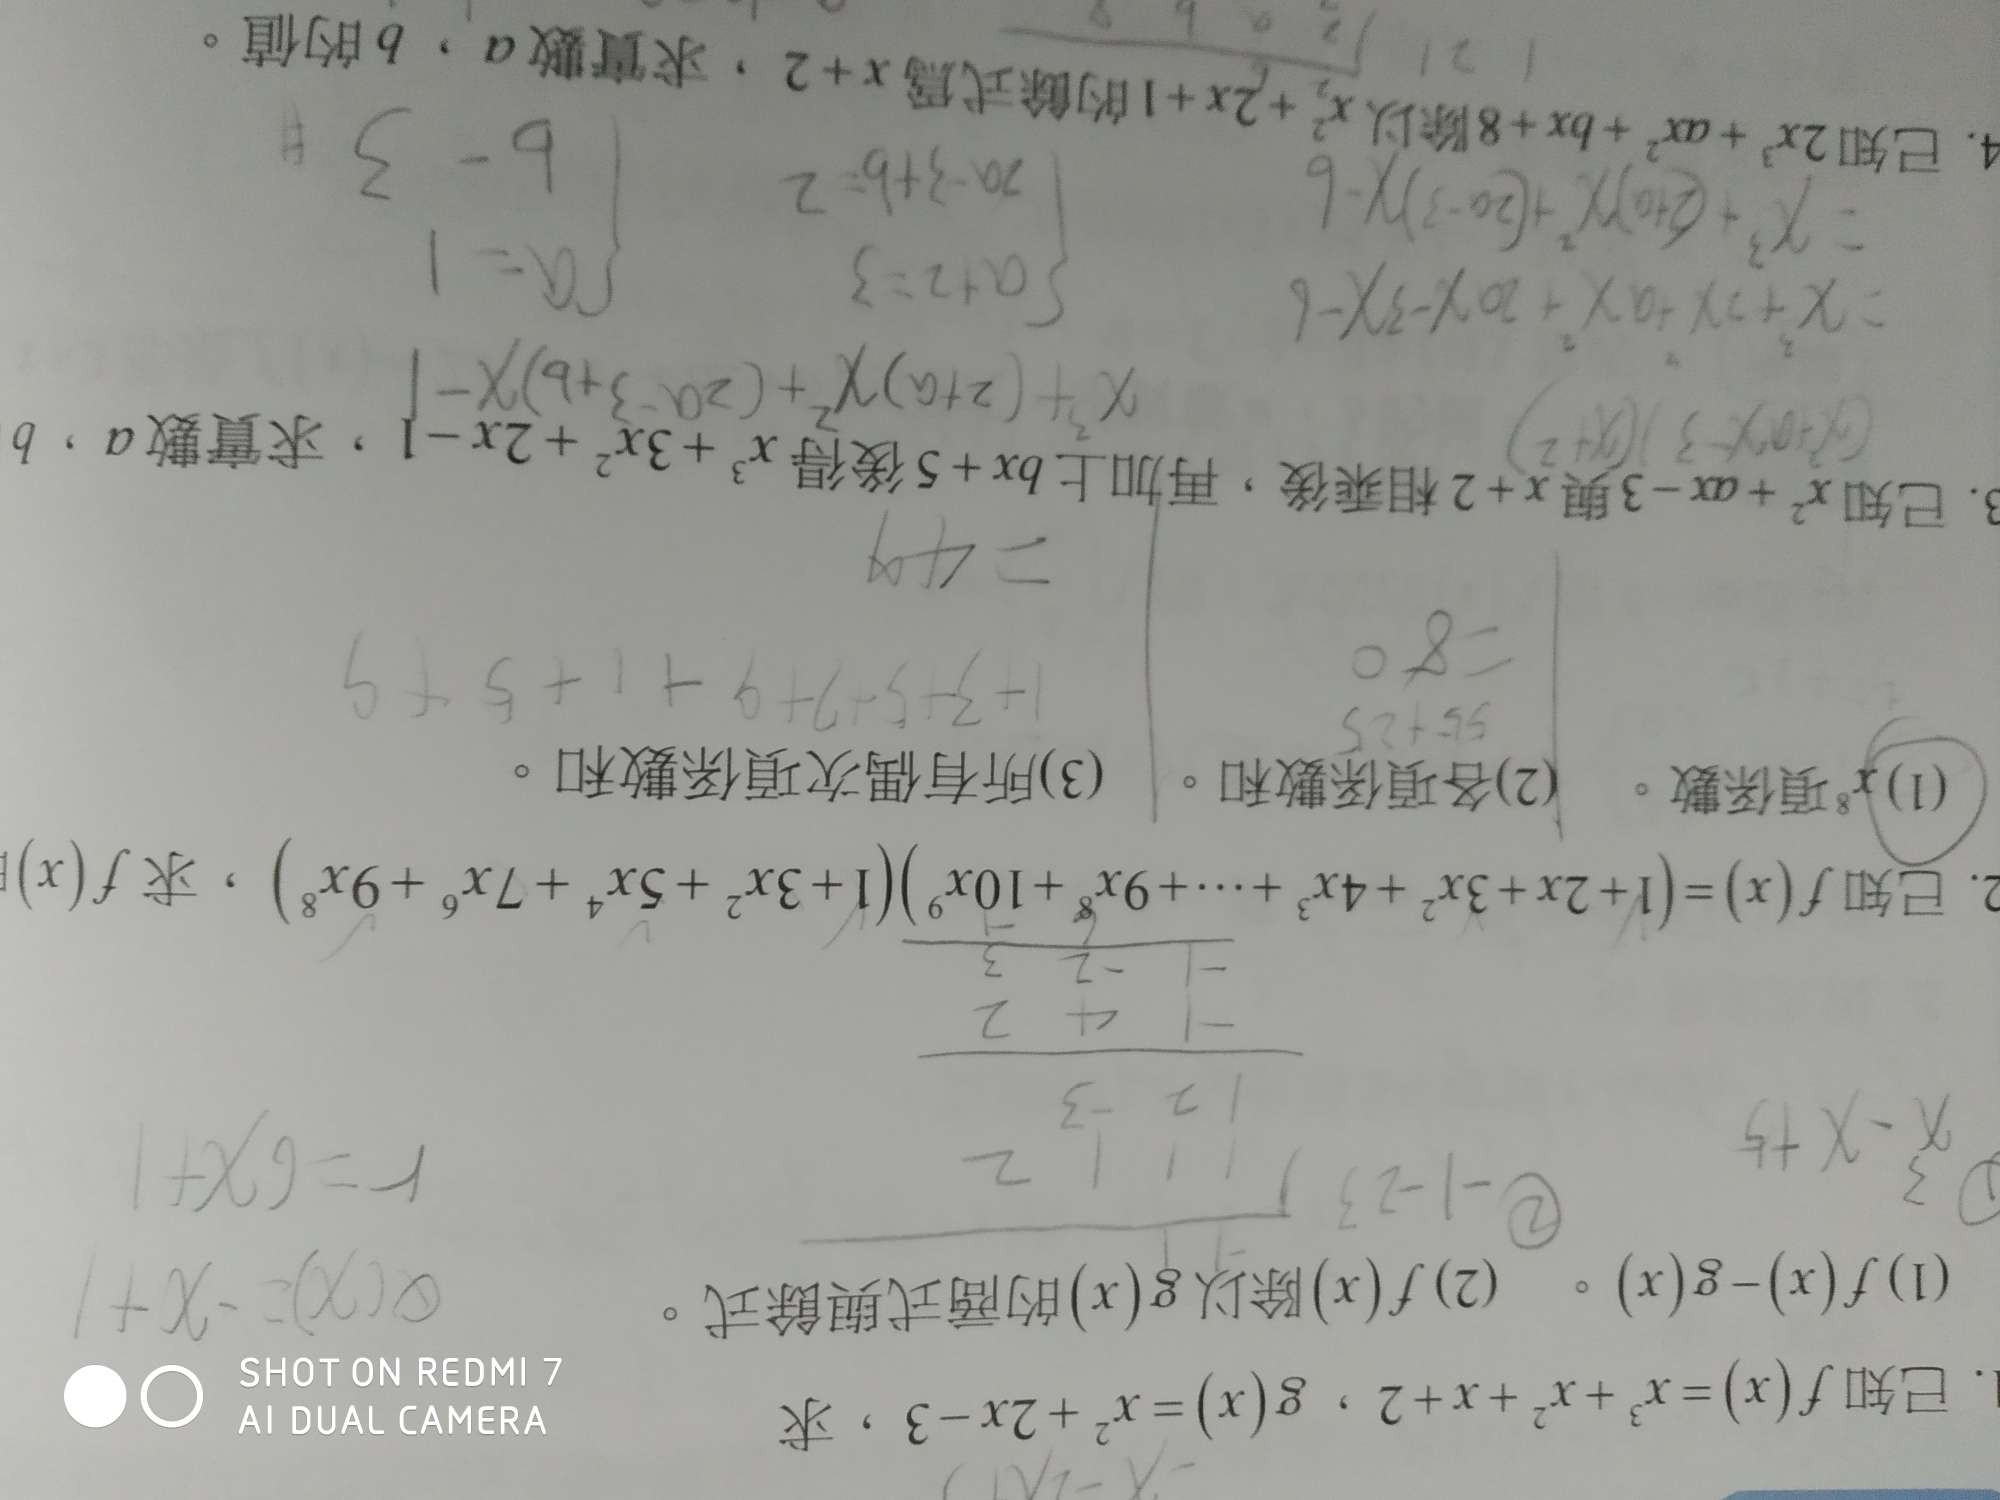 1. 已知 f(x)=x³+x²+x+2,g(x)=x²+2x−3,求
(1) f(x)−g(x)。 (2) f(x)除以g(x)的商式與餘式。
① x³-x+5
② -1-2 3
1 1 1 2
1 2 -3
-1 4 2
-1 -2 3
6 -1
Q(x)=-x+1
r=6x+1
2. 已知 f(x)=(1+2x+3x²+4x³+⋯+9x⁸+10x⁹)(1+3x²+5x⁴+7x⁶+9x⁸),求 f(x)
(1) x⁸項係數。 (2)各項係數和。 (3)所有偶次項係數和。
55+25
=80
1+3+5+7+9+1+5+9
=49
3. 已知 x²+ax−3與 x+2相乘後,再加上bx+5後得 x³+3x²+2x−1,求實數a,b
(x²+ax-3)(x+2)
x³+(2+a)x²+(2a-3+b)x-1
=x³+2x²+ax²+2ax-3x-6
=x³+(2+a)x²+(2a-3)x-6
a+2=3
2a-3+b=2
a=1
b-3 #
4. 已知 2x³+ax²+bx+8除以 x²+2x+1的餘式為 x+2,求實數a,b的值。
1 2 1
2 a b 8
SHOT ON REDMI 7
AI DUAL CAMERA